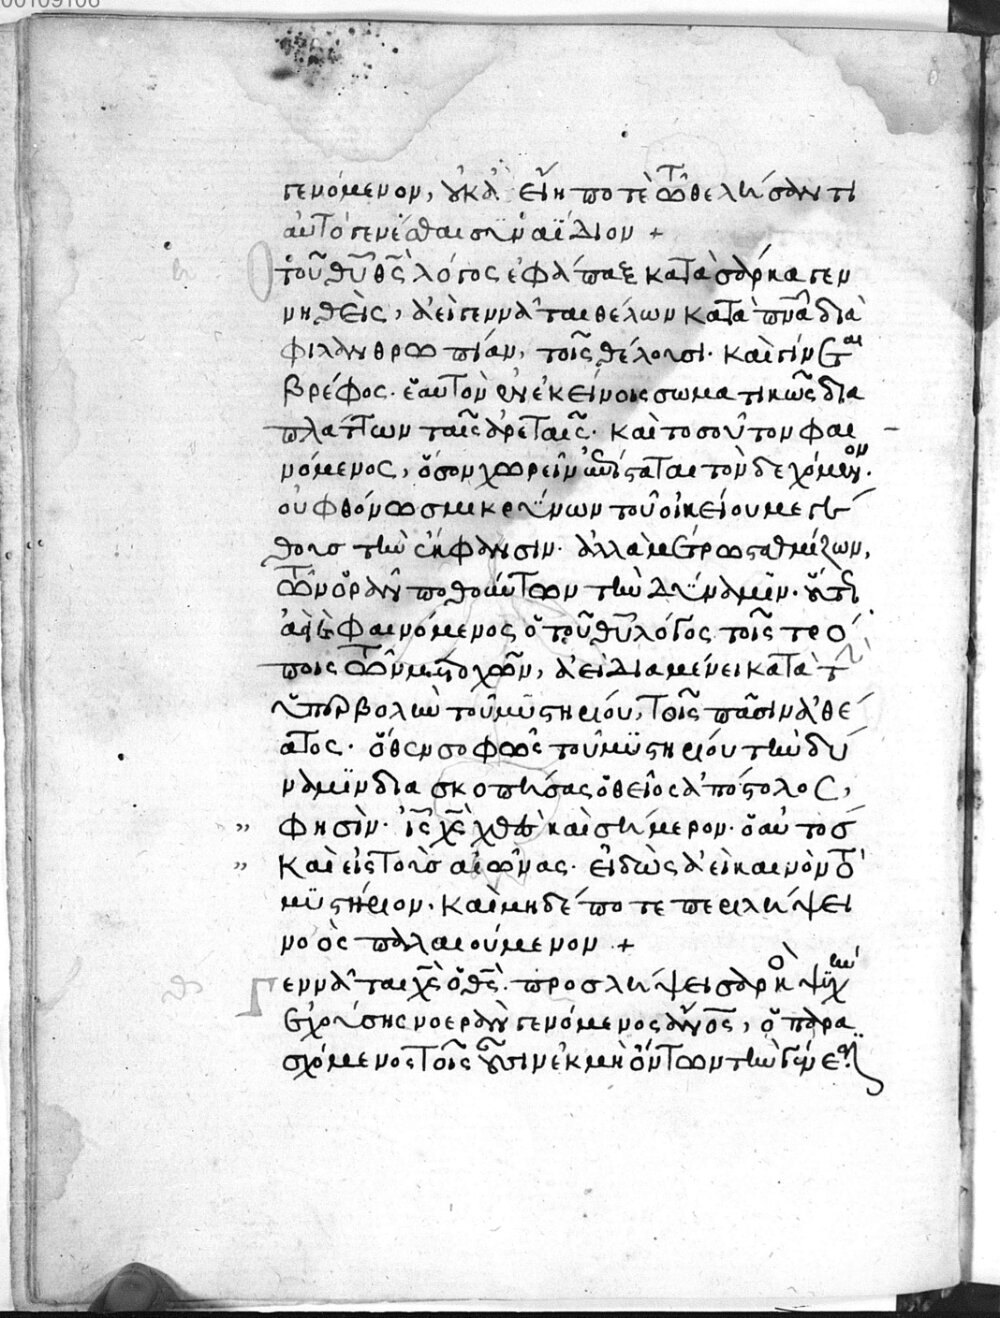 00109106
γενόμενον, οὐκ ἂν εἴη ποτὲ τῶ θελήσαντι
αὐτὸ γενέσθαι συναΐδιον +
ὁ τοῦ θυ θς λόγος ἐφάπαξ κατὰ σάρκα γεν
νηθεὶς, ἀεὶ γεννᾶται θέλων κατὰ πνα διὰ
φιλανθρωπίαν, τοῖς θέλουσι· καὶ γίνεται
βρέφος· ἑαυτὸν ἐν ἐκείνοις σωματικῶς δια
πλάττων ταῖς ἀρεταῖς· καὶ τοσοῦτον φαι
νόμενος, ὅσον χωρεῖν ἐπίσταται τὸν δεχόμενον·
οὐ φθόνω σμικρύνων τοῦ οἰκείου μεγέ
θους τὴν ἔκφανσιν· ἀλλὰ μέτρω σταθμίζων,
τῶν ὁρᾶν ποθούντων τὴν δύναμιν· οὕτω
ἀεὶ φαινόμενος ὁ τοῦ θυ λόγος τοῖς τρό
ποις τῶν μετόχων, ἀεὶ διαμένει κατὰ τ
ὑπερβολὴν τοῦ μυστηρίου, τοῖς πᾶσιν ἀθέ
ατος· ὅθεν σοφῶς τοῦ μυστηρίου τὴν δύ
ναμιν διασκοπήσας ὁ θεῖος ἀπόστολος,
" φησὶν· ις χς χθὲς καὶ σήμερον· ὁ αὐτὸς
" καὶ εἰς τοὺς αἰῶνας· εἰδὼς ἀεὶ καινὸν τὸ
μυστήριον· καὶ μηδέποτε περιλήψει
νοὸς παλαιούμενον +
Γεννᾶται χς ὁ θς· προσλήψει σαρκὸς ψυχὴν
ἐχούσης νοερὰν γενόμενος ανος, ὁ παρα
σχόμενος τοῖς οὖσιν ἐκ μὴ ὄντων τὴν γένεσιν